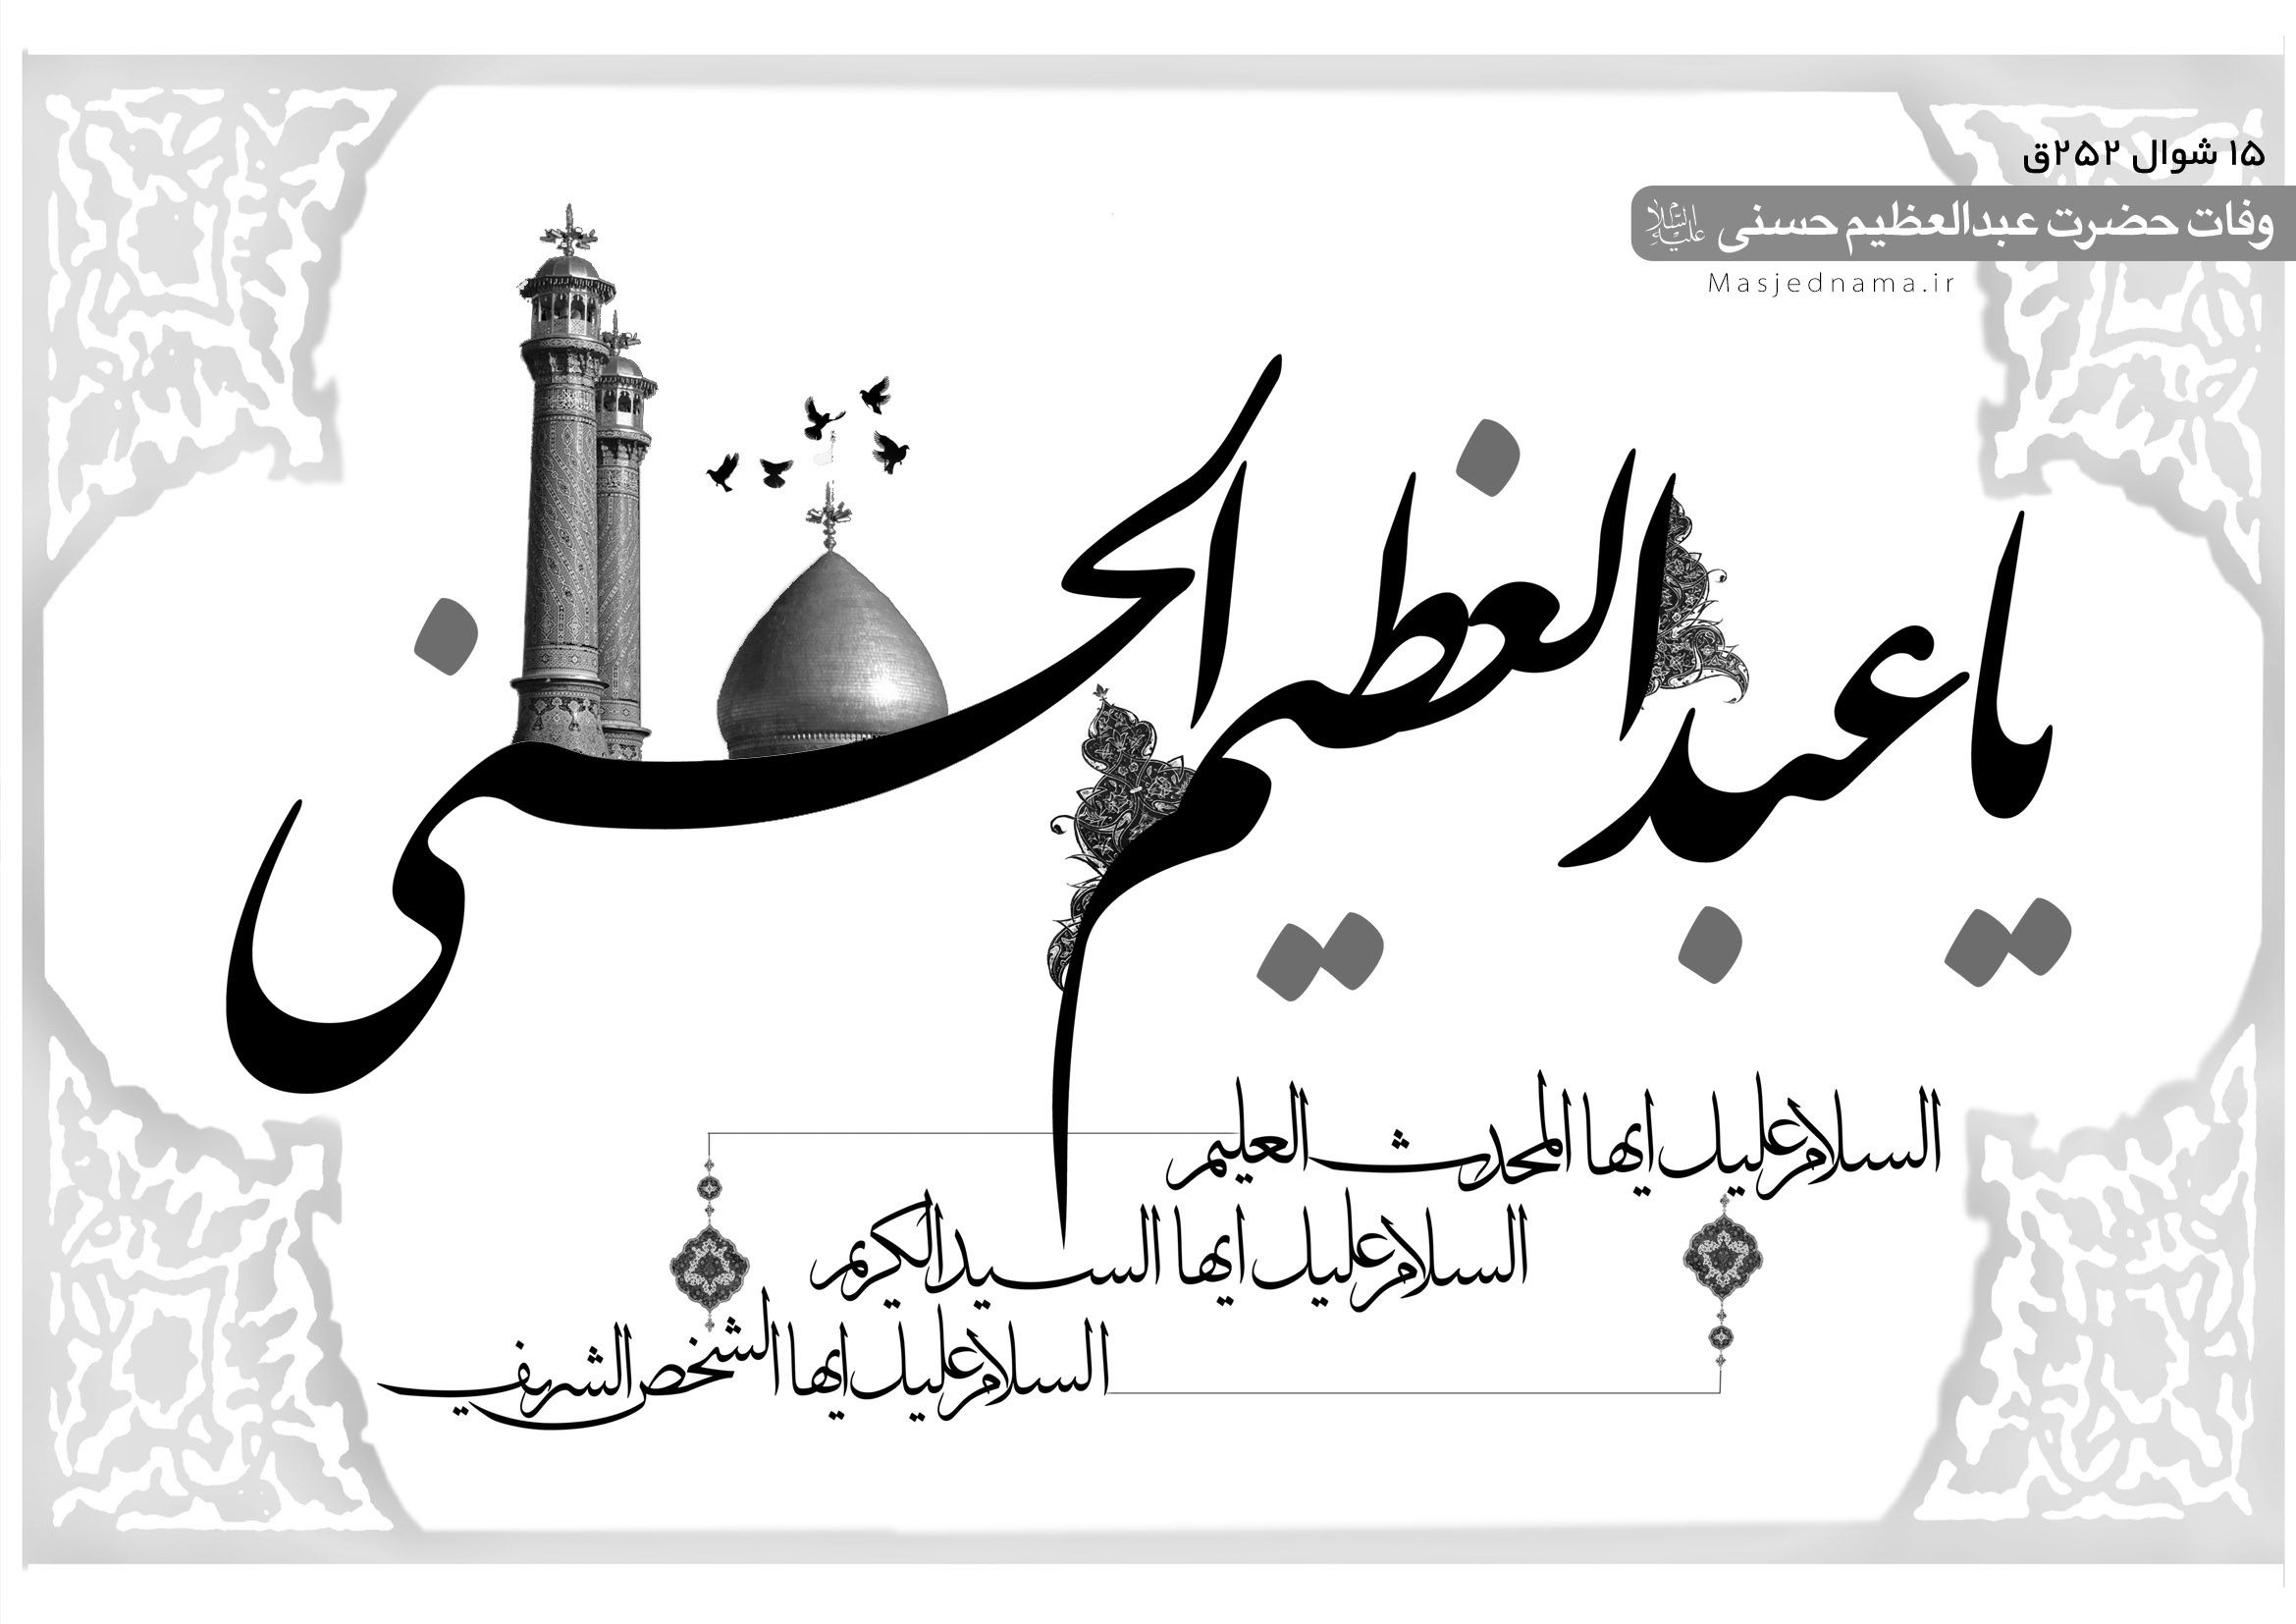 ۱۵ شوال ۲۵۲ق
وفات حضرت عبدالعظیم حسنی علیه‌السلام
Masjednama.ir
یا عبدالعظیم الحسنی
السلام علیک ایها المحدث العلیم
السلام علیک ایها السید الکریم
السلام علیک ایها الشخص الشریف